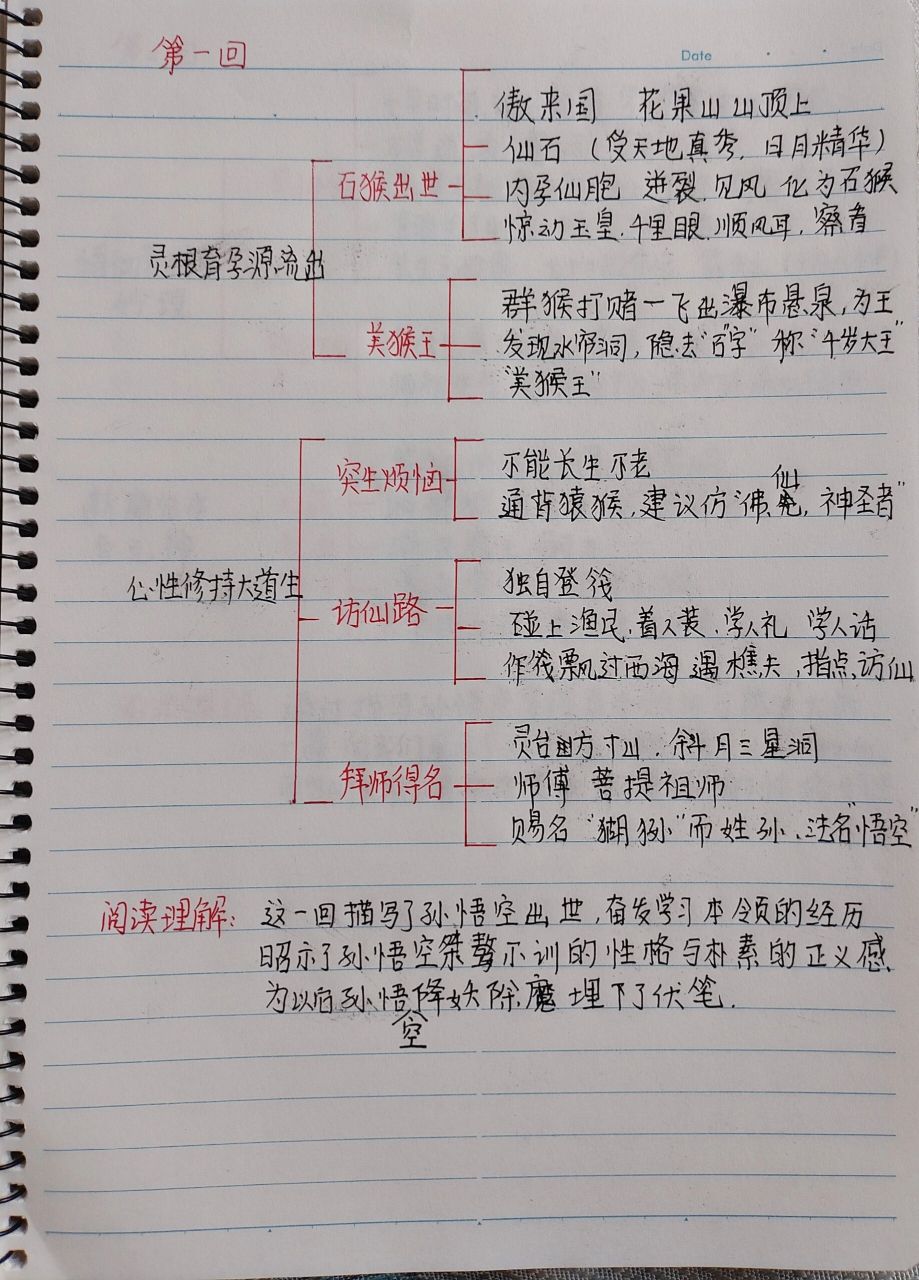 第一回
Date
傲来国 花果山山顶上
仙石（受天地真秀，日月精华）
石猴出世
内孕仙胞 迸裂.见风 化为石猴
惊动玉皇.千里眼.顺风耳，察看
灵根育孕源流出
群猴打赌一飞出瀑布悬泉，为王
美猴王
发现水帘洞，隐去“石字” 称“千岁大王”
“美猴王”
突生烦恼
不能长生不老
通背猿猴，建议仿“佛，仙，神圣者”
心性修持大道生
独自登筏
访仙路
碰上渔民，着人装、学人礼 学人话
作筏飘过西海 遇樵夫，指点访仙
灵台方寸山、斜月三星洞
拜师得名
师傅 菩提祖师
赐名“猢狲”而姓孙、法名“悟空”
阅读理解：这一回描写了孙悟空出世，奋发学习本领的经历
昭示了孙悟空桀骜不训的性格与朴素的正义感
为以后孙悟空降妖除魔埋下了伏笔.